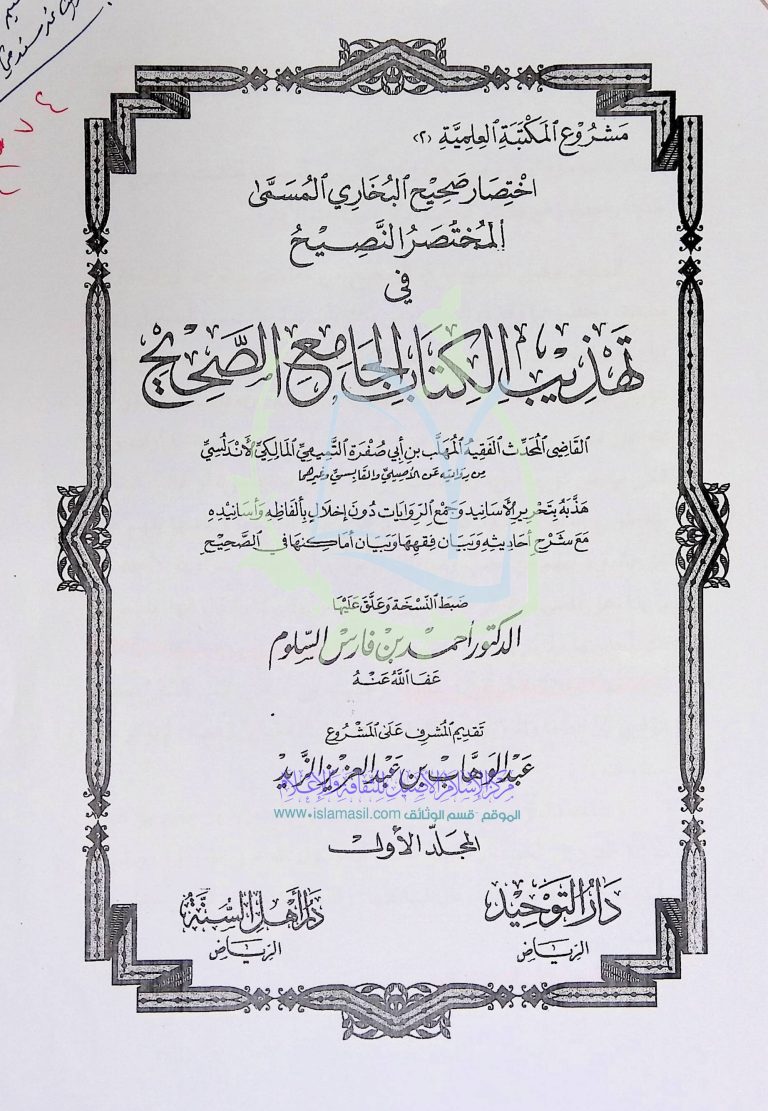 مَشْرُوعُ المَكْتَبَةِ العِلمِيَّةِ (٢)
اخْتِصَار صَحِيْحِ البُخَارِي المُسَمَّىٰ
المُخْتَصَرُ النَّصِيْحُ
فِي
تَهْذِيْبِ الكِتَابِ الجَامِعِ الصَّحِيْحِ
القَاضِي المُحَدِّث الفَقِيهُ المُهَلَّب بن أَبِي صُفْرَة التَّمِيمِيّ المَالِكِيّ الأَنْدَلُسِيّ
مِن رِوَايَتِهِ عَن الأَصِيلِيّ وَالقَابِسِيّ وَغَيرِهِمَا
هَذَّبَهُ بِتَحْرِيرِ الأَسَانِيدِ وَجَمْعِ الرِّوَايَاتِ دُونَ إِخْلَالٍ بِأَلفَاظِهِ وَأَسَانِيدِهِ
مَعَ شَرْحِ أَحَادِيثِهِ وَبَيَان فِقهِهَا وَبَيَان أَمَاكِنِهَا فِي الصَّحِيْحِ
ضَبَطَ النُّسْخَةَ وَعَلَّقَ عَلَيْهَا
الدكتور أحمد بن فارس السلوم
عَفَا اللهُ عَنْهُ
تَقْدِيم المُشرِف عَلَى المَشْرُوع
عَبد الوَهَّاب بن عَبد العَزِيز الزَّيد
مركز الإسلام الأصيل للثقافة والإعلام
الموقع - قسم الوثائق www.islamasil.com
المجلد الأول
دَارُ التَّوْحِيد
الرياض
دَارُ أَهْلِ السُّنَّة
الرياض
٣٧٤